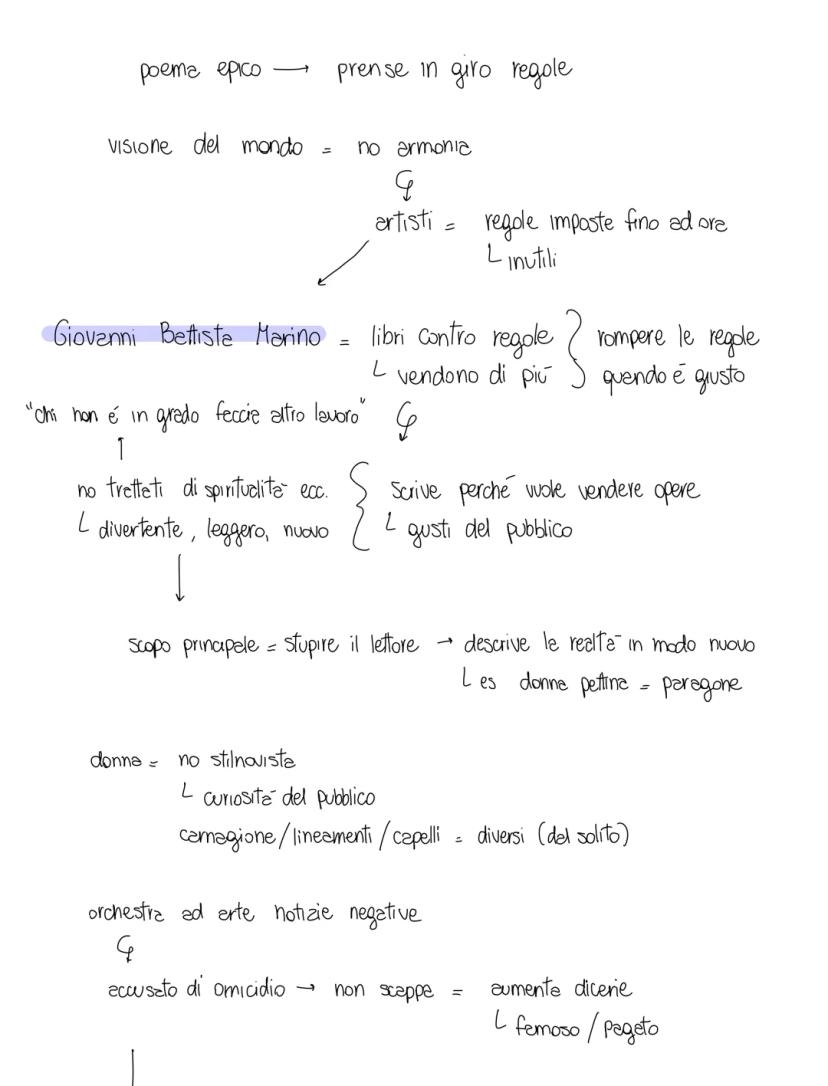 poema epico → prense in giro regole
visione del mondo = no armonia
artisti = regole imposte fino ad ora
inutili
Giovanni Battista Marino = libri contro regole } rompere le regole
vendono di più quando é giusto
"chi non é in grado faccia altro lavoro"
no trattati di spiritualità ecc. { scrive perché vuole vendere opere
divertente, leggero, nuovo gusti del pubblico
scopo principale = stupire il lettore → descrive la realtà in modo nuovo
es donna pettina = paragone
donna = no stilnovista
curiosità del pubblico
carnagione/lineamenti/capelli = diversi (dal solito)
orchestra ad arte notizie negative
accusato di omicidio → non scappa = aumenta dicerie
famoso/pagato